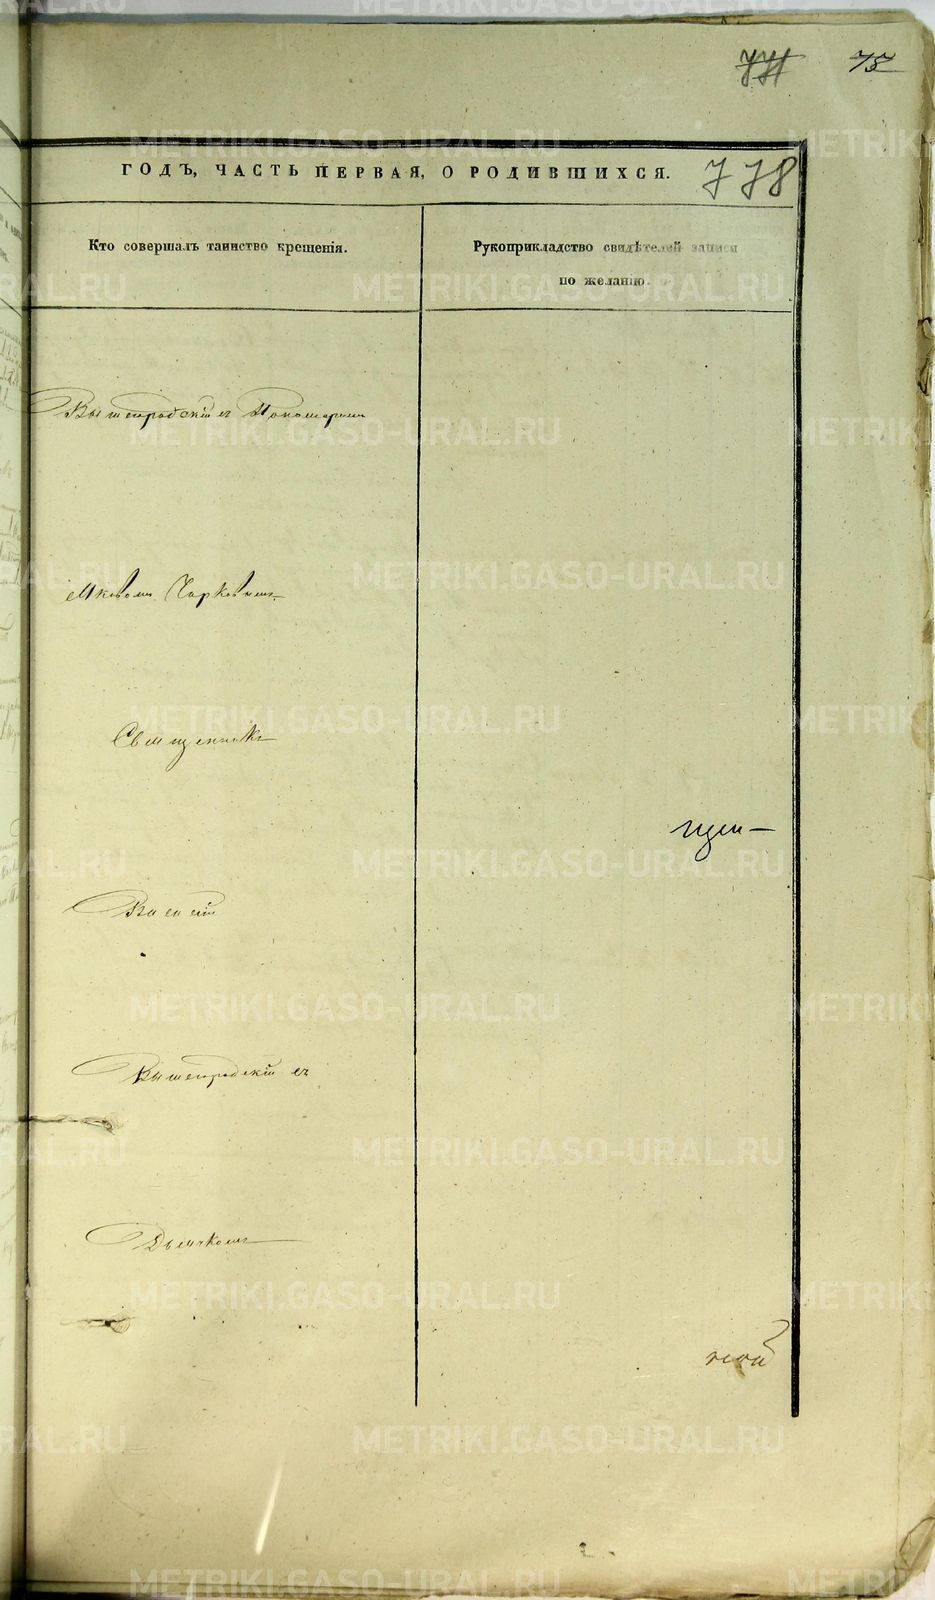 75
778
ГОДЪ, ЧАСТЬ ПЕРВАЯ, О РОДИВШИХСЯ.
Кто совершалъ таинство крещенія.
Рукоприкладство свидѣтелей записи
по желанію.
Вышегродскій съ Пономаремъ
Яковомъ Чарковымъ
Священникъ
Василій
Вышегродскій съ
Дьячкомъ
METRIKI.GASO-URAL.RU